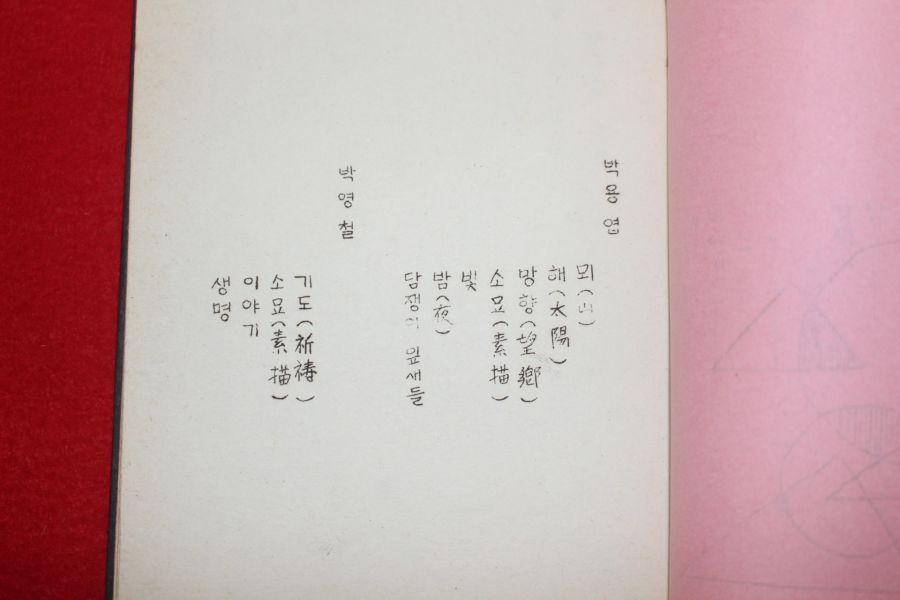 박용엽
뫼(山)
해(太陽)
망향(望鄕)
소묘(素描)
빛
밤(夜)
담쟁이 잎새들
박영철
기도(祈禱)
소묘(素描)
이야기
생명